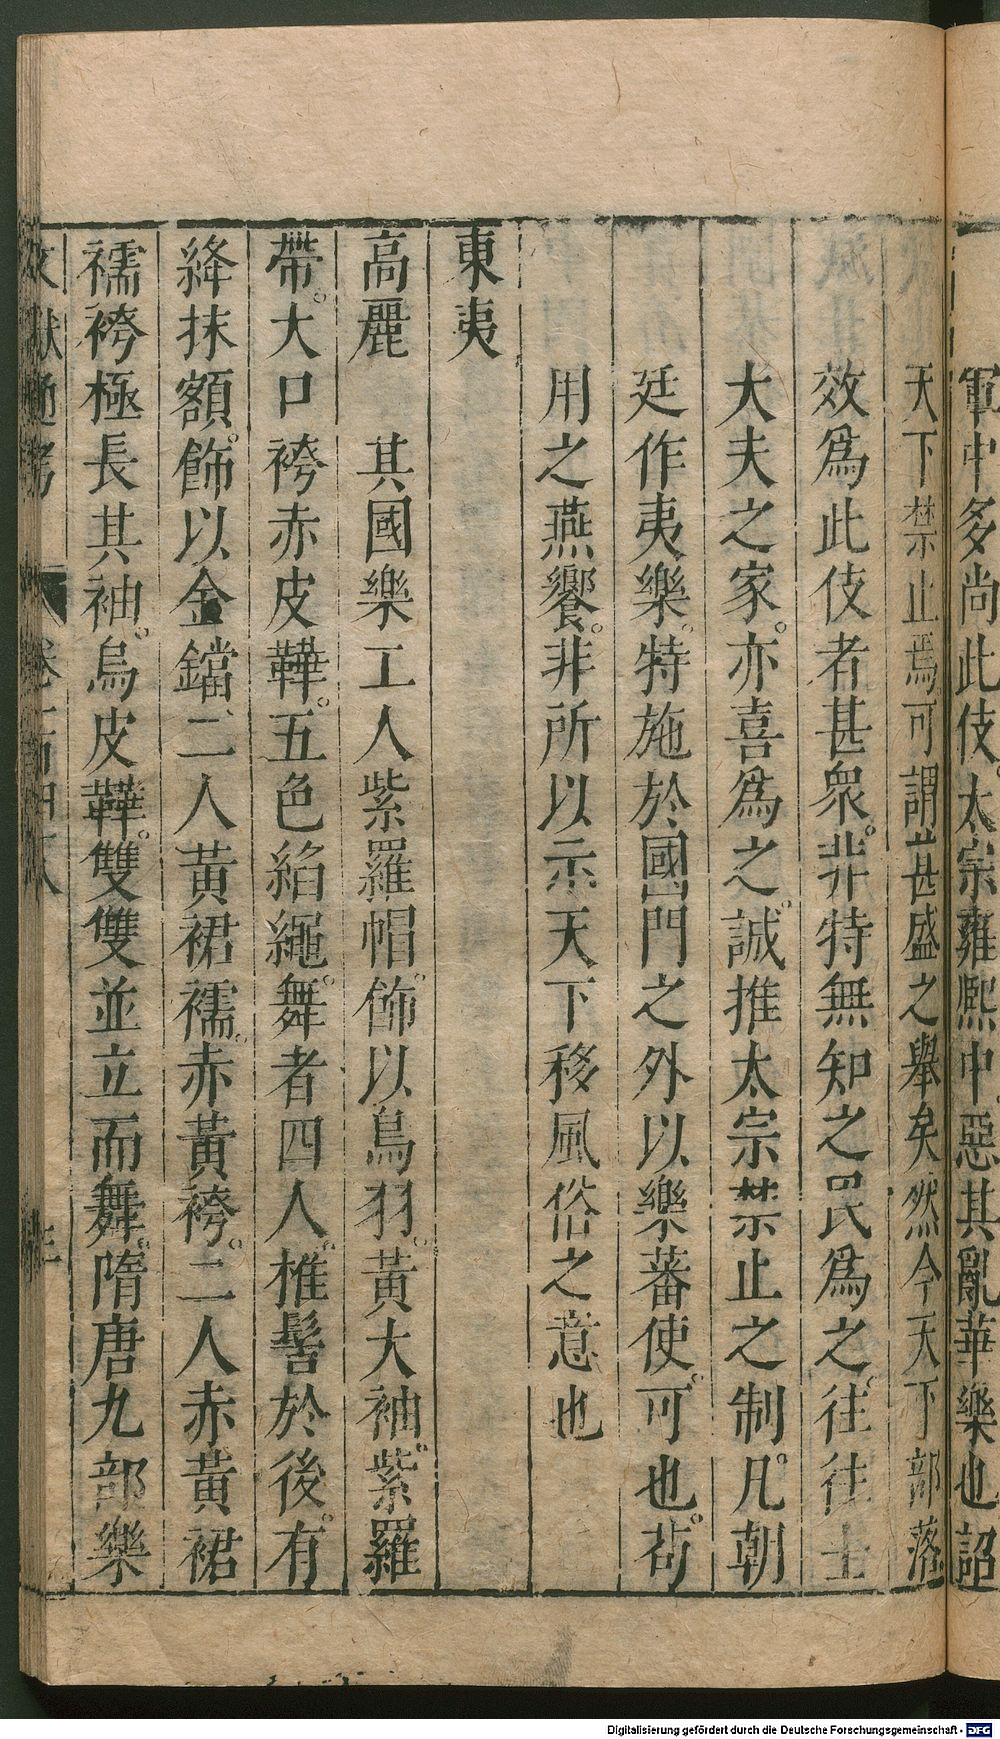 軍中多尚此伎太宗雍熙中惡其亂華樂也詔
天下禁止焉可謂甚盛之舉矣然今天下部落
效爲此伎者甚衆非特無知之民爲之往往士
大夫之家亦喜爲之誠推太宗禁止之制凡朝
廷作夷樂特施於國門之外以樂蕃使可也苟
用之燕饗非所以示天下移風俗之意也
東夷
高麗　其國樂工人紫羅帽飾以鳥羽黃大袖紫羅
帶大口袴赤皮鞾五色縚繩舞者四人椎髻於後有
絳抹額飾以金鐺二人黃裙襦赤黃袴二人赤黃裙
襦袴極長其袖烏皮鞾雙雙並立而舞隋唐九部樂
文獻通考 卷一百四十八 三
Digitalisierung gefördert durch die Deutsche Forschungsgemeinschaft - DFG